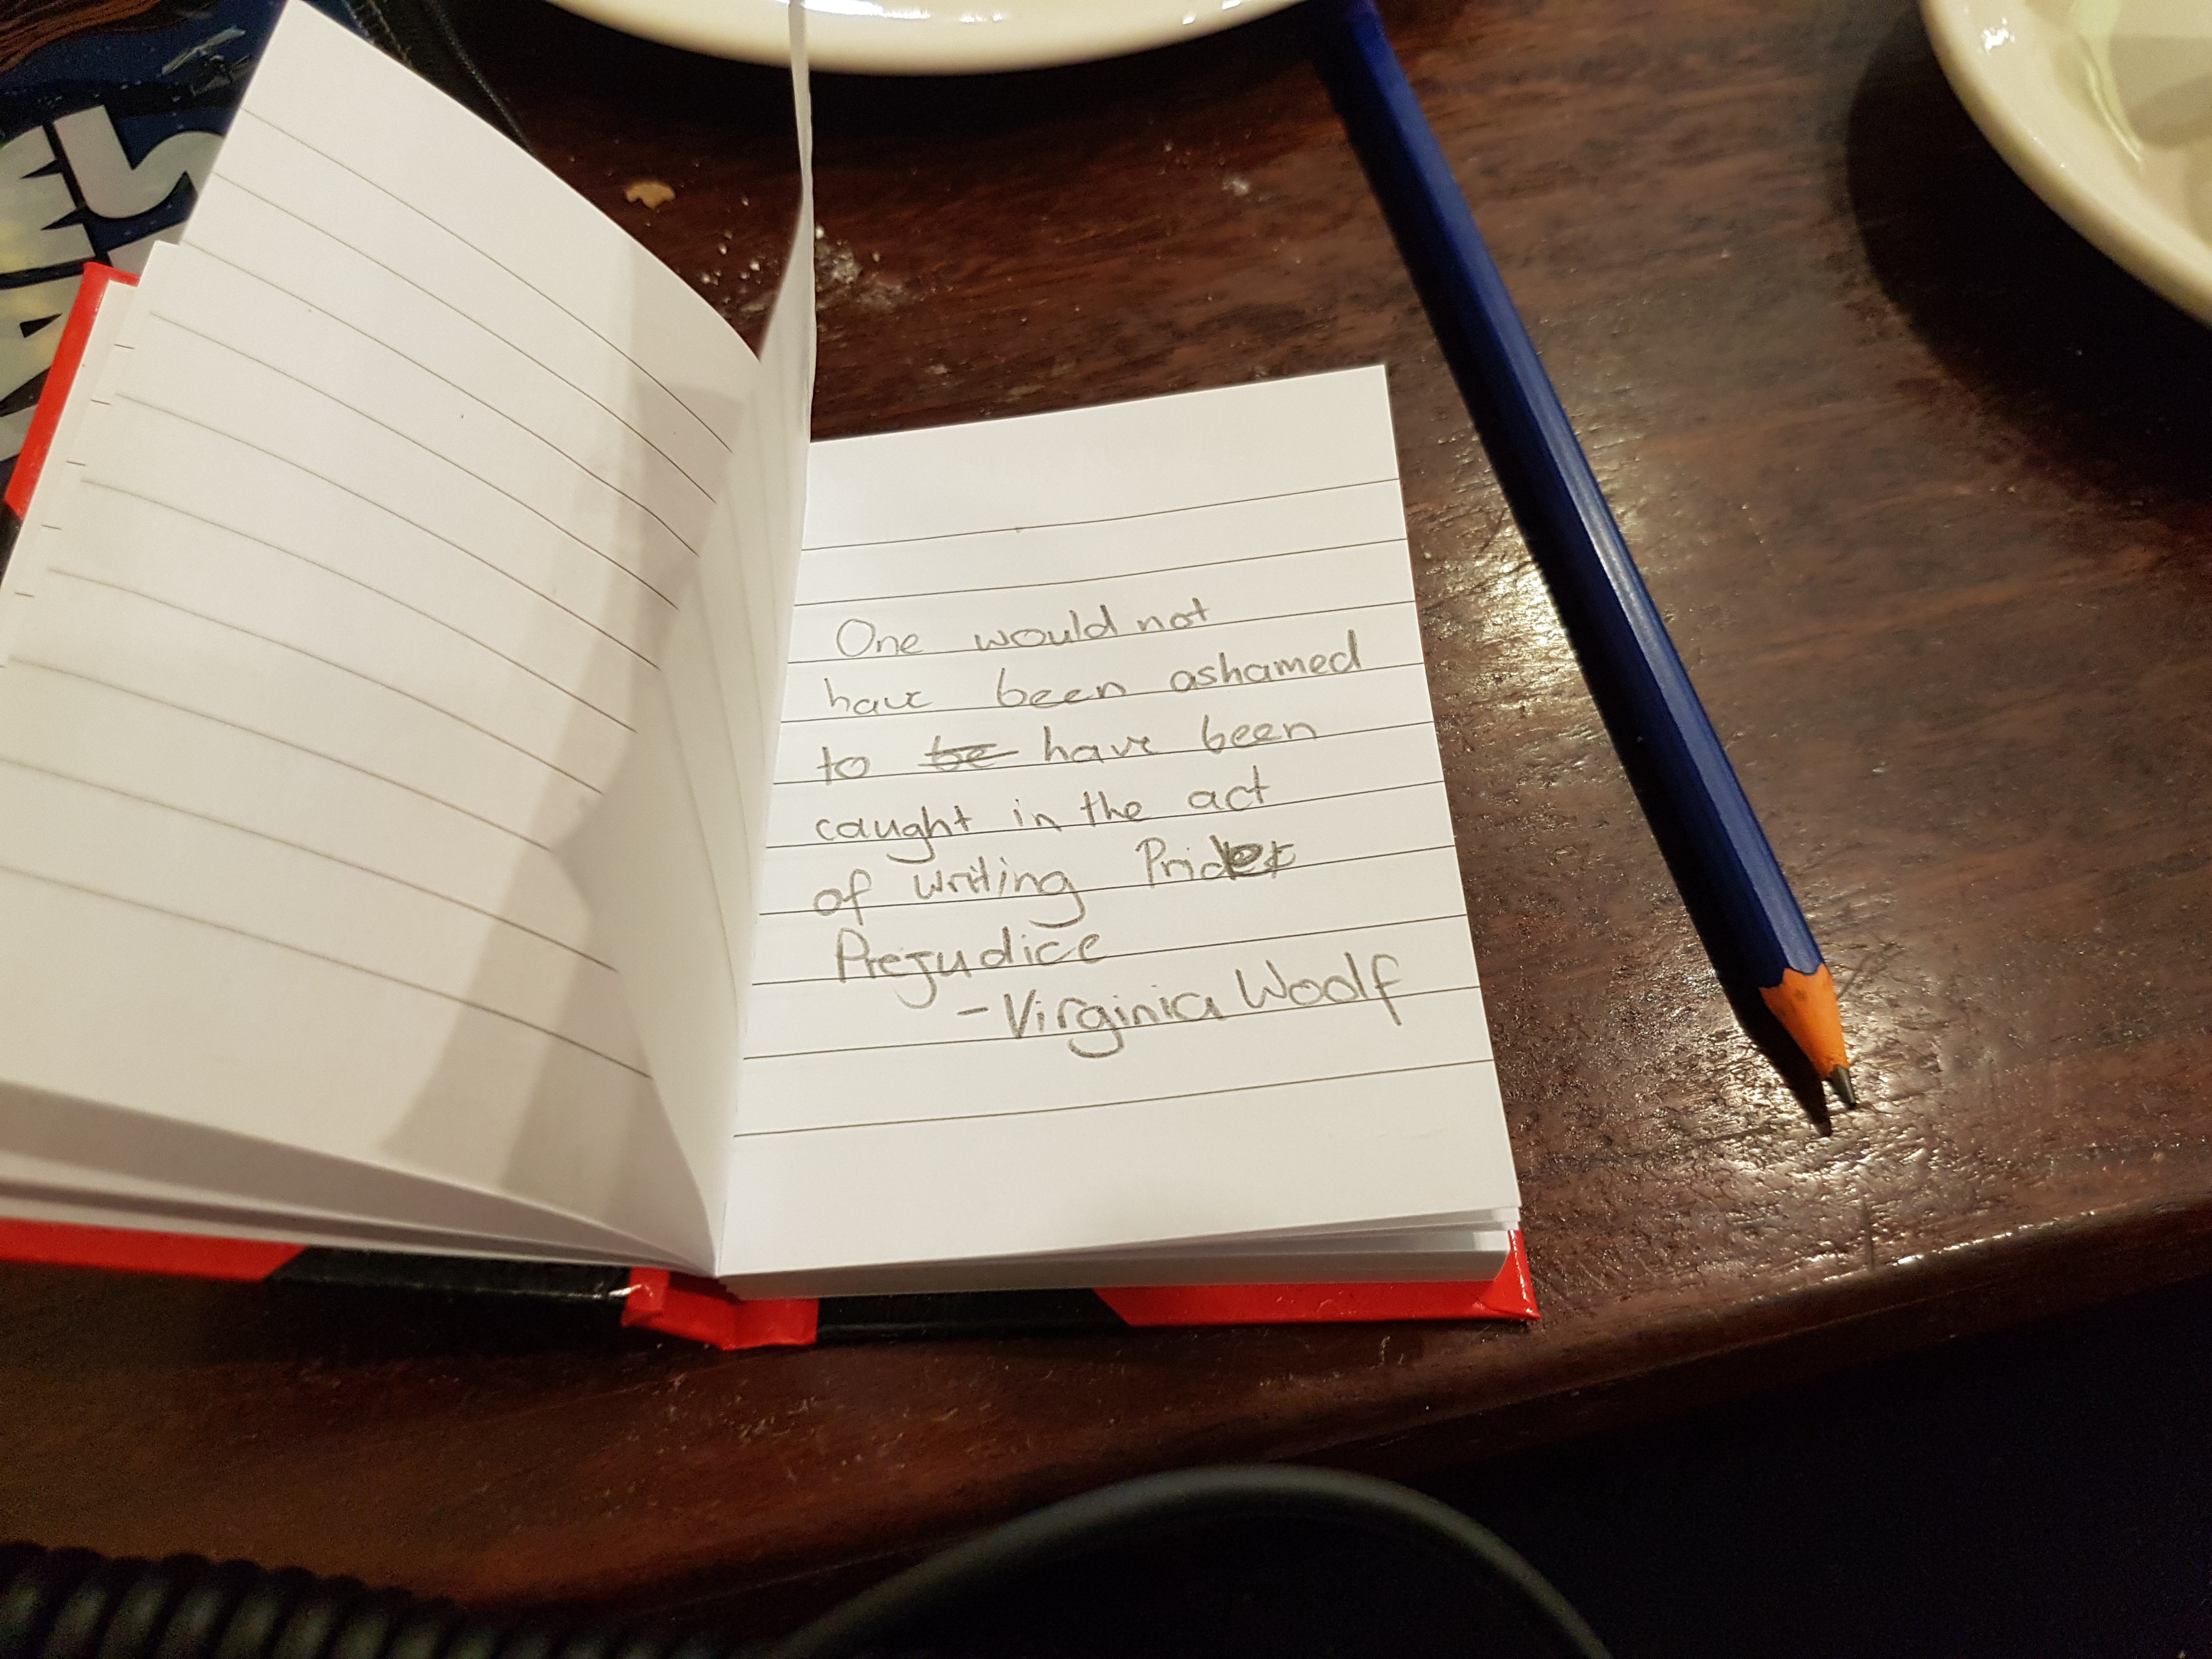 One would not
have been ashamed
to be have been
caught in the act
of writing Pride &
Prejudice
- Virginia Woolf